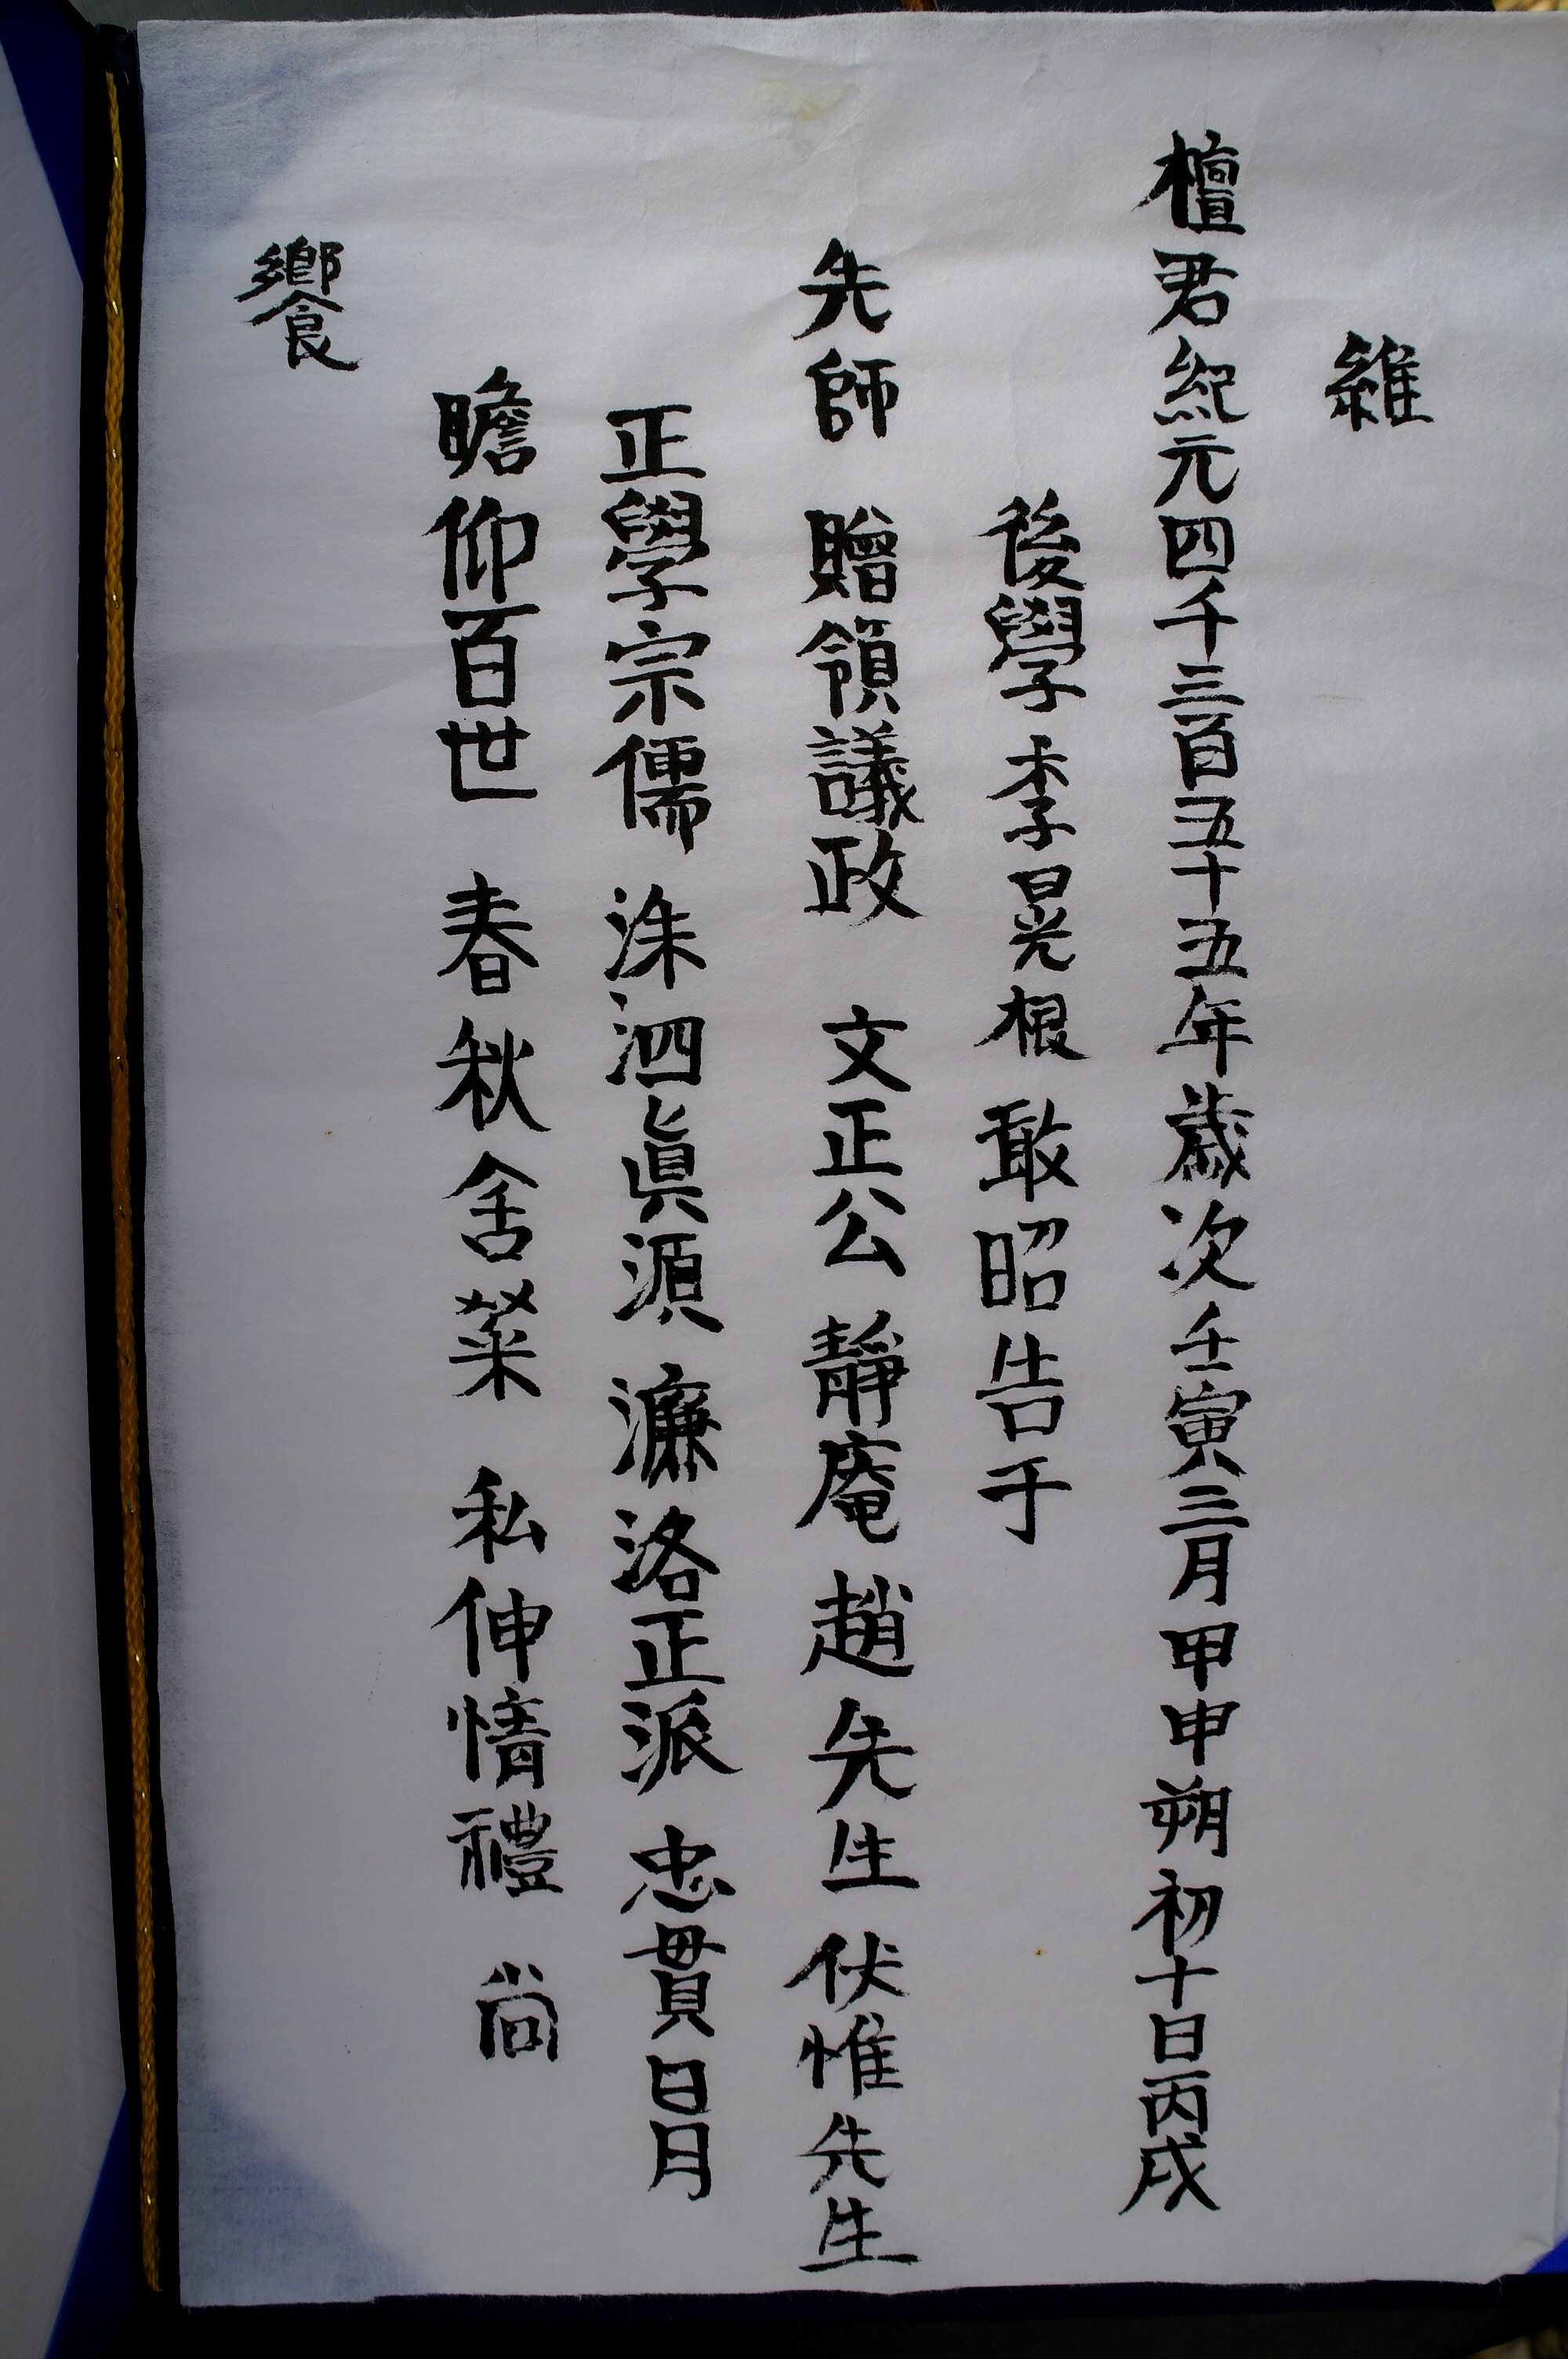 維
檀君紀元四千三百五十五年歲次壬寅三月甲申朔初十日丙戌
後學 李晃根 敢昭告于
先師 贈領議政 文正公 靜庵 趙先生 伏惟先生
正學宗儒 洙泗眞源 濂洛正派 忠貫日月
瞻仰百世 春秋舍菜 私伸情禮 尚
饗